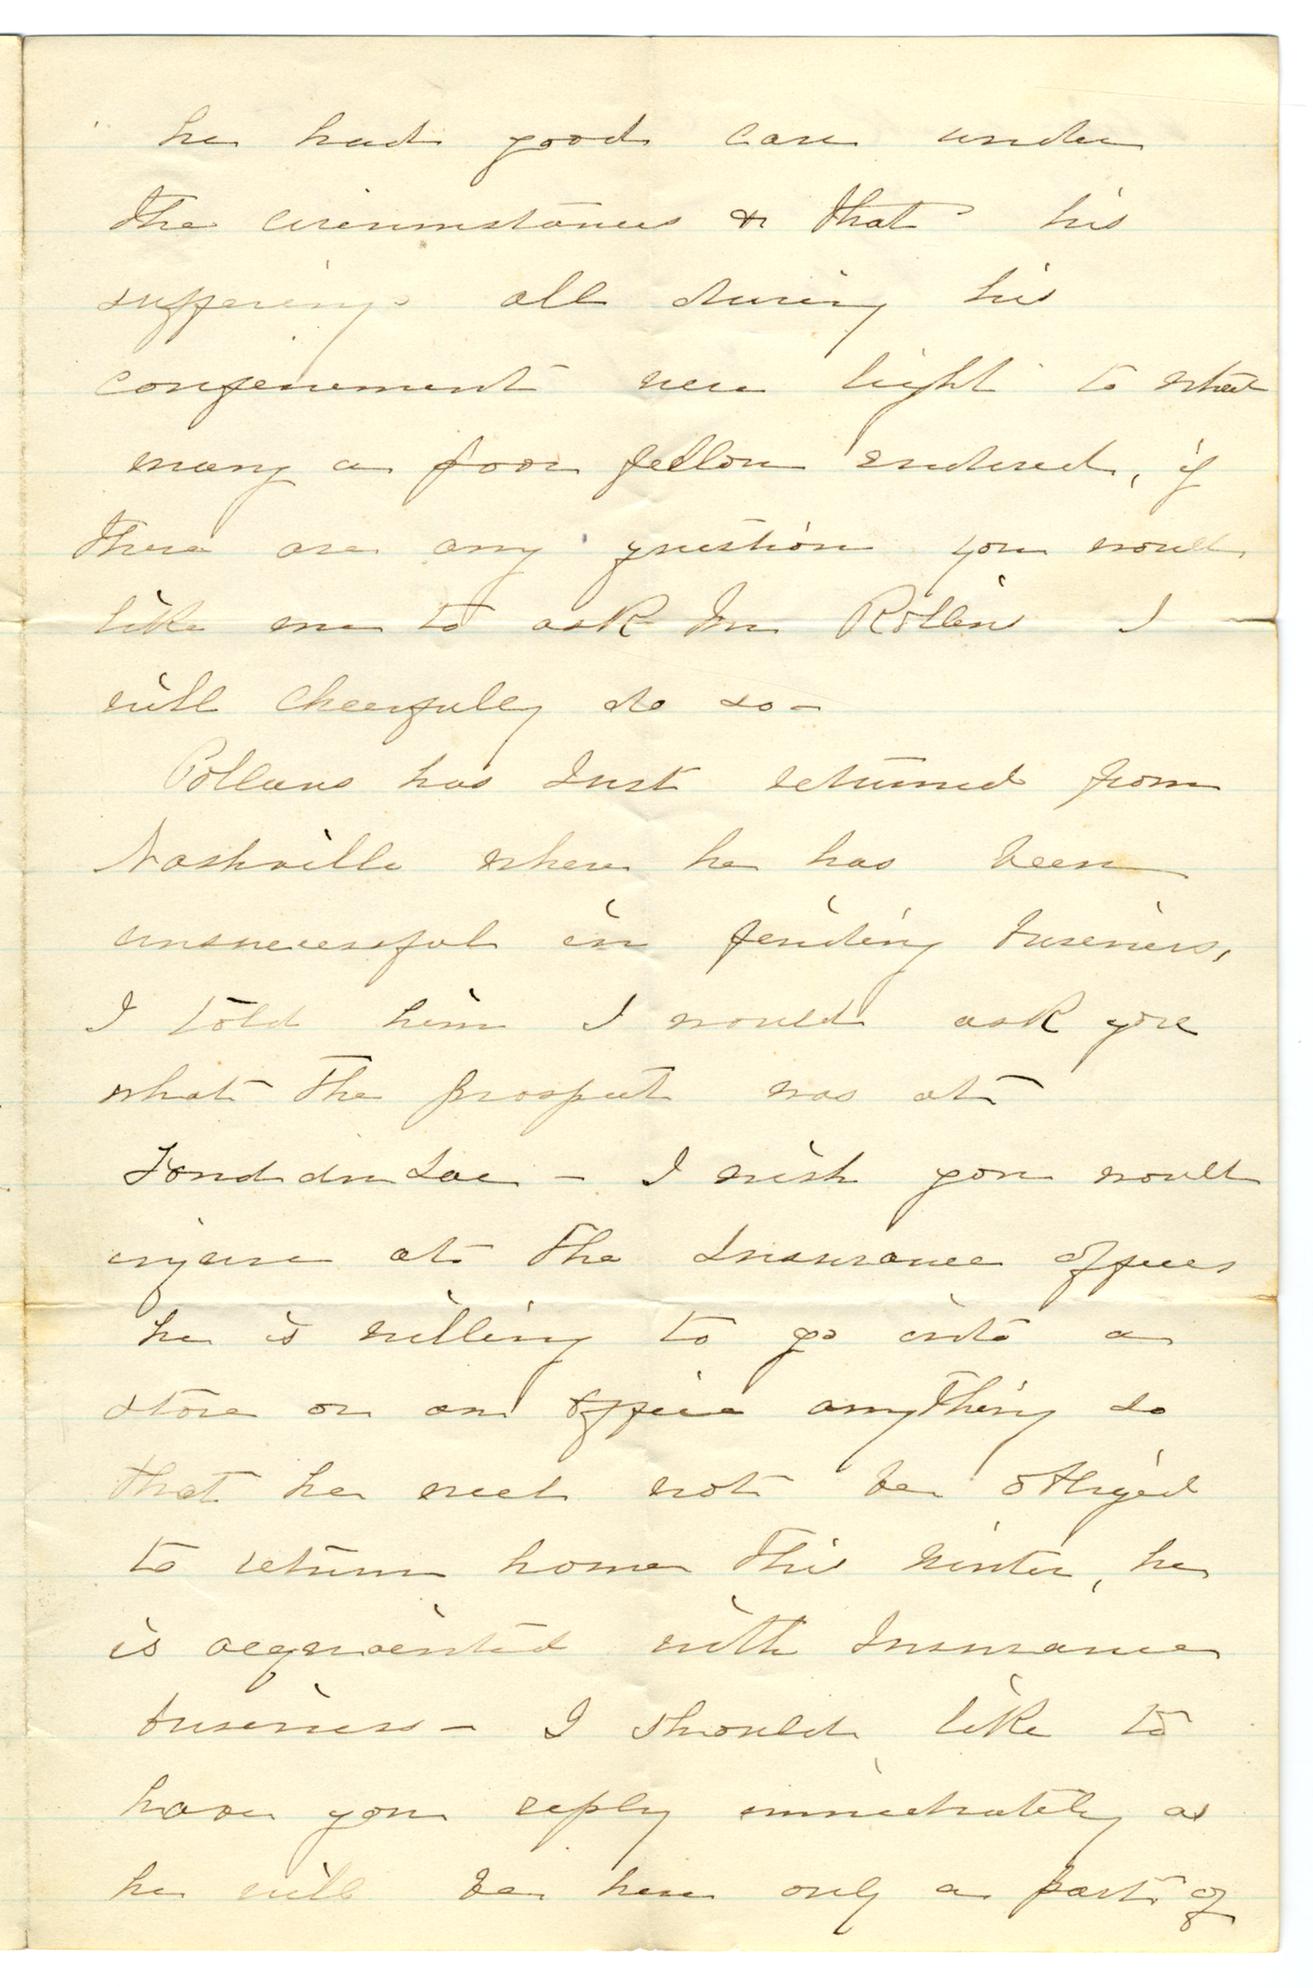 he had good care under
the circumstances & that his
sufferings all during his
confinement were light to what
many a poor fellow endured, if
there are any question you would
like me to ask Mr Rollins I
will cheerfully do so -
has just returned from
Nashville where he has been
unsuccessful in finding business,
I told him I would ask you
what the prospect was at
Fond du Lac - I wish you would
enquire at the Insurance offices
he is willing to go into a
store or an office anything so
that he need not be obliged
to return home this winter, he
is acquainted with Insurance
business - I should like to
have you reply immediately as
he will be here only a part of